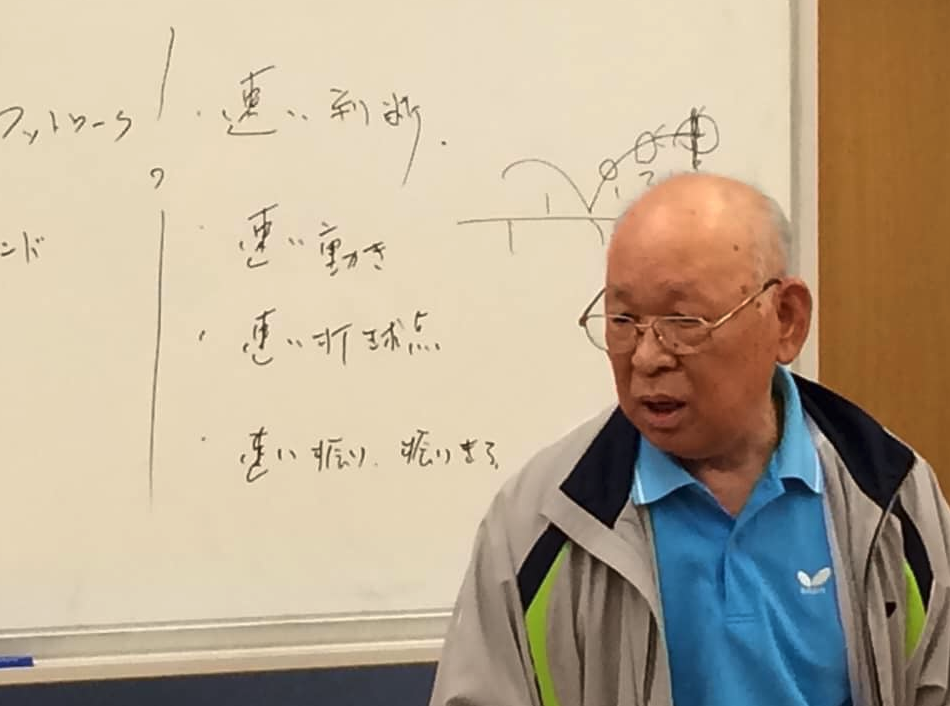 フットワーク
・速い判断.
ンド
・速い動き
・速い打球点
・速い振り、振りきる
1
1
2